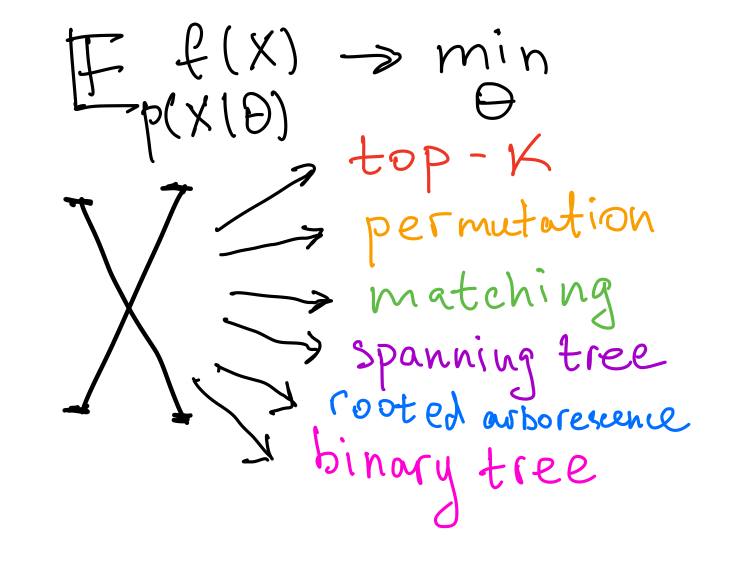 𝔼 f(X) → min
p(X|θ) θ
top - K
permutation
X
matching
spanning tree
rooted arborescence
binary tree